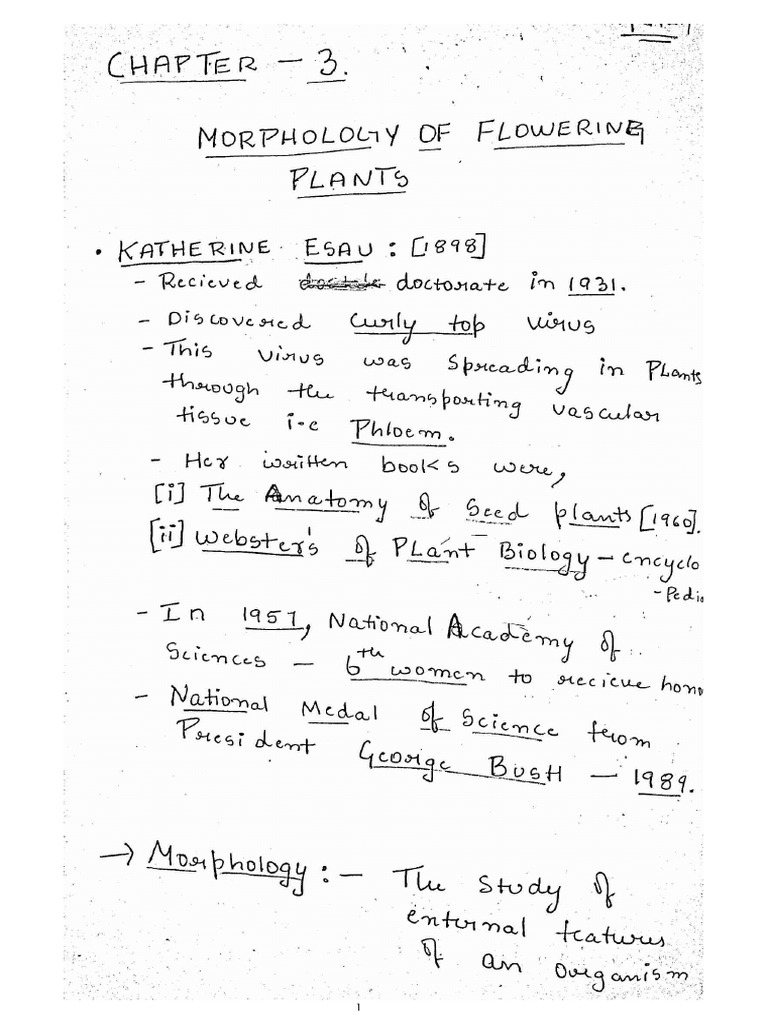 CHAPTER - 3.
MORPHOLOGY OF FLOWERING
PLANTS
• KATHERINE ESAU : [1898]
- Recieved doctorate in 1931.
- Discovered Curly top virus
- This virus was spreading in Plants
through the transporting vascular
tissue i.e Phloem.
- Her written books were,
[i] The Anatomy of Seed plants [1960].
[ii] Webster's of Plant Biology - encyclo
- Pedi
- In 1957, National Academy of
Sciences - 6th women to recieve hono
- National Medal of Science from
President George Bush - 1989.
→ Morphology :- The study of
external features
of an organism
1